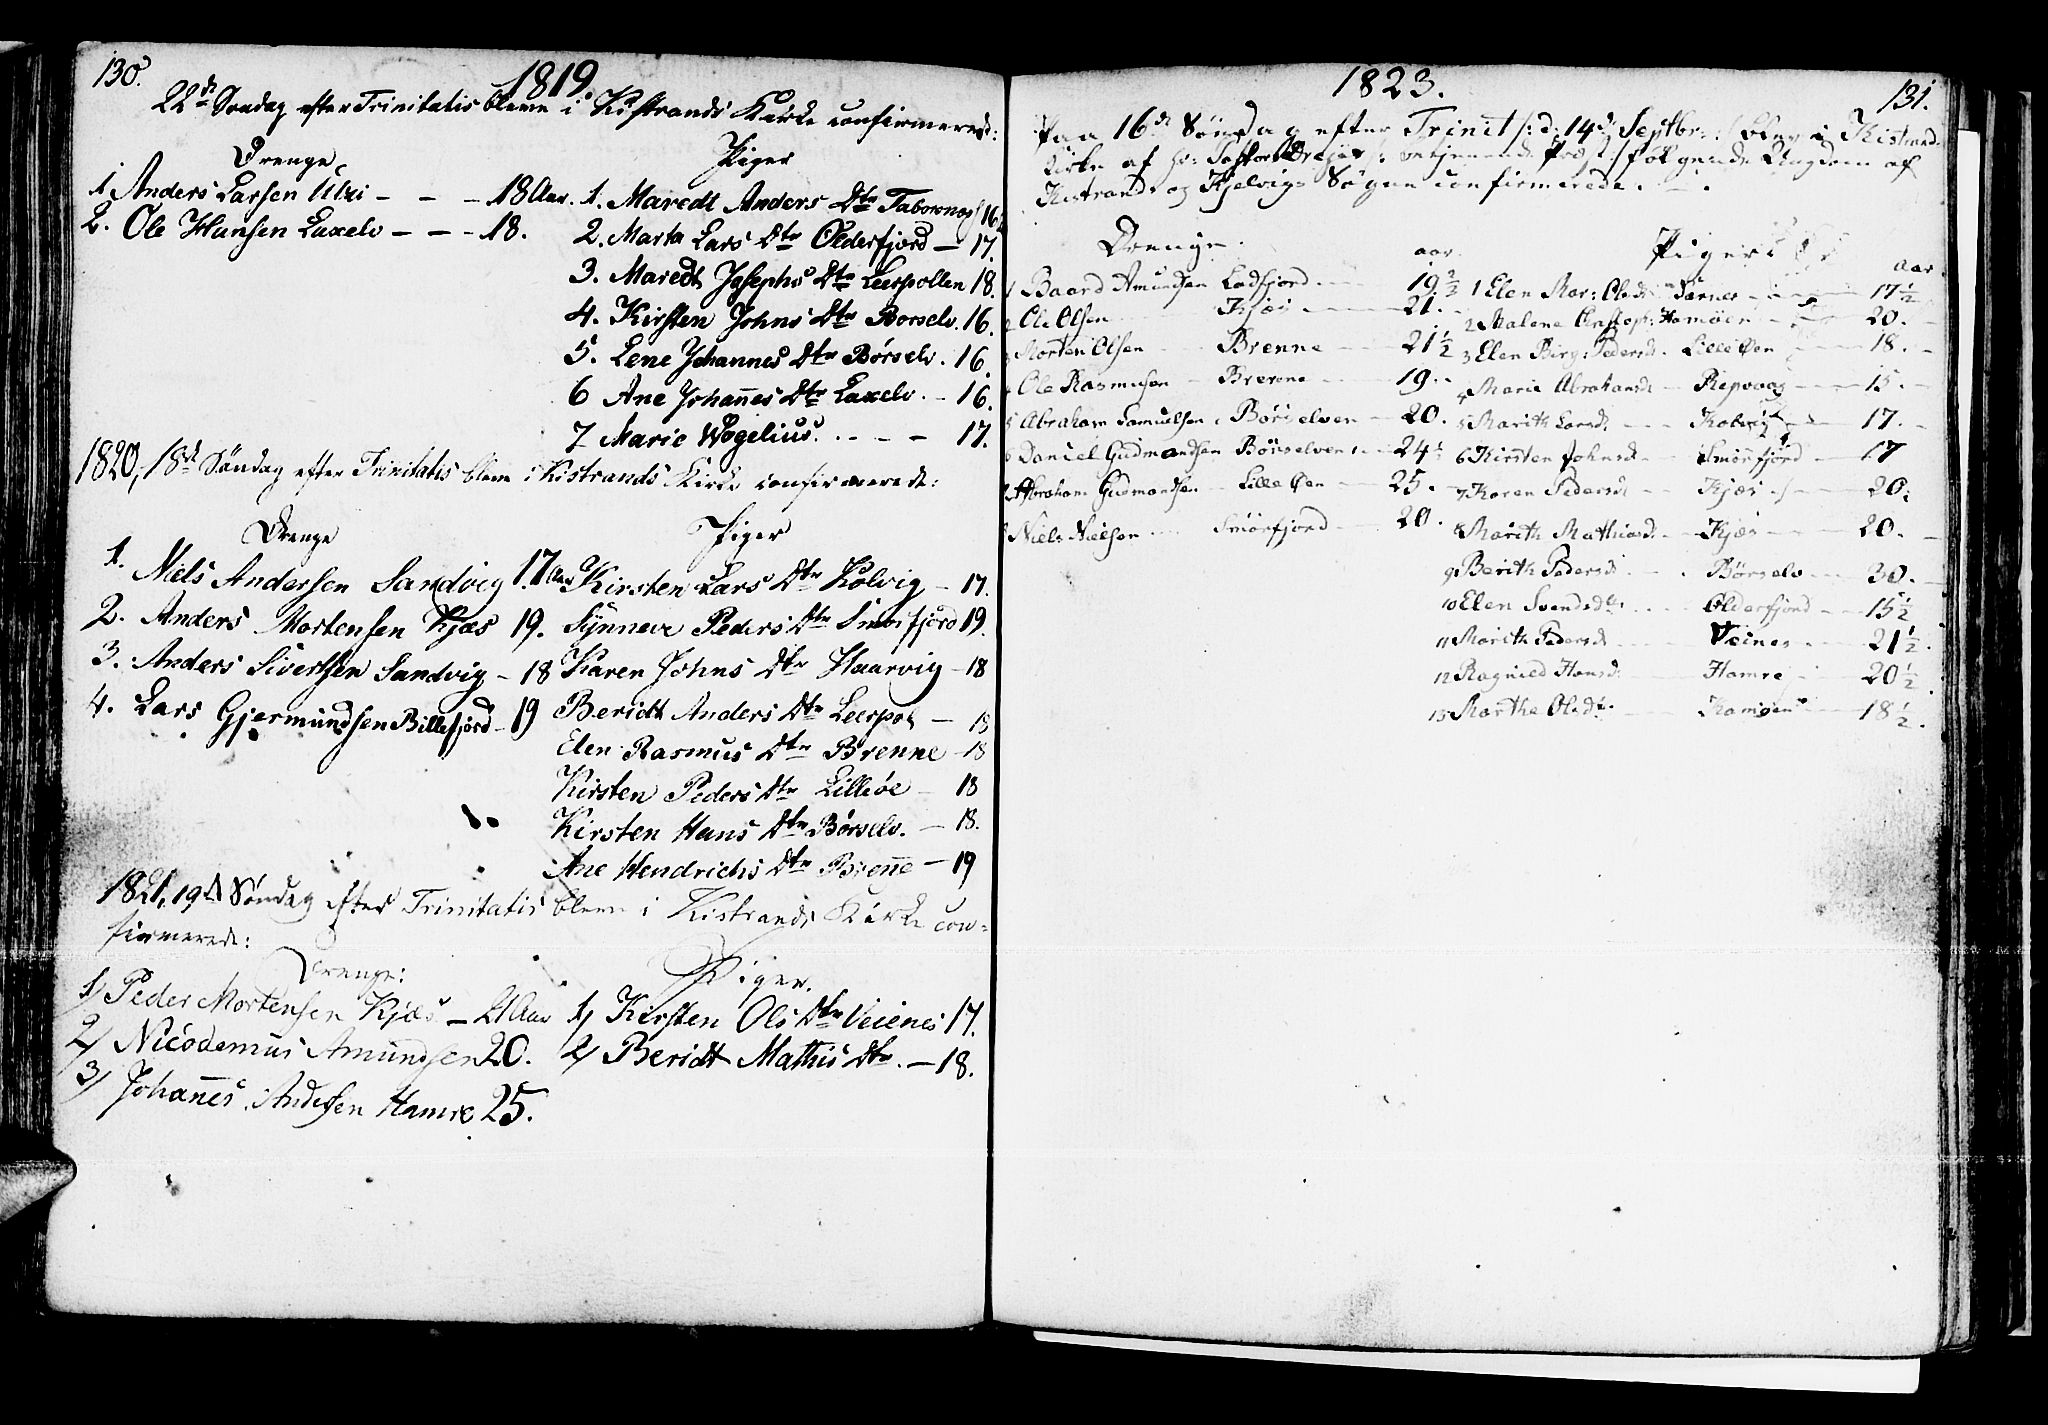 130.
1819.
22de Søndag efter Trinitatis bleve i Kistrands Kirke confirmerede:
Drenge
Piger
1 Anders Larsen - - - 18 Aar.
2. Ole Hansen Laxelv - - - 18.
1. Maredt Anders Dtr 16
2. Marta Lars Dtr Olderfjord - 17.
3. Maredt Josephs Dtr Leerpollen 18.
4. Kirsten Johns Dtr Borselv. 16.
5. Lene Johannes Dtr Børselv. 16.
6 Ane Johañes Dtr Laxelv. - 16.
7 Marie Wogelius. . - - - 17.
1820, 18de Søndag efter Trinitatis bleve i Kistrands Kirke confirmerede:
Drenge
Piger
1. Niels Andersen Sandvig 17 Aar
2. Anders Mortensen Kjæs 19.
3. Anders Sivertsen Sandvig - 18
4. Lars Gjermundsen Billefjord - 19
Kirsten Lars Dtr Kolvig - 17.
Synneve Peders Dtr Smørfjord 19.
Karen Johns Dtr Haarvig - 18
Beridt Anders Dtr Leerpol - 18
Elen Rasmus Dtr Brenne - 18
Kirsten Peders Dtr Lilleøe - 18
Kirsten Hans Dtr Børselv. - 18.
Ane Hendrichs Dtr Breñe - 19
1821, 19de Søndag efter Trinitatis bleve i Kistrands Kirke con=
firmerede:
Drenge:
Piger.
1) Peder Mortensen Kjæs - 21 Aar
2) Nicodemus Amundsen 20.
3) Johañes Andersen Hamre 25.
1) Kirsten Ols Dtr Veienes 17.
2) Beridt Mathis Dtr. - 18.
1823.
131.
Paa 16de Søndag efter Trinit /: d: 14de Septbr: :/ blev i Kistrand
Kirke af Hr: Pastor følgende Ungdom af
Kistrands og Kjelvigs Sogne confirmerede.
Drenge.
aar
Piger
aar
1 Baard Amundsen Ladfjord - 19 2/2
2 Ole Olsen Kjæs - 21.
3 Morten Olsen - Brenne - 21 1/2
4 Ole Rasmusen - Brenne - 19.
5 Abraham Samuelsen Børselven - 20.
6 Daniel Gudmandsen Børselven - 24
7 Abraham Gudmandsen - Lille Øen - 25.
8 Niels Nielsen Smörfjord - 20.
1 Elen Mar: Olsdr - 17 1/2
2 Malene Christoph: Kamøen - 20.
3 Elen Birg: Pedersd. Lille Øen - 18.
4 Marie Abrahamsd - Repvaag - 15.
5 Marith Larsd: - Kolvig - 17.
6 Kirsten Johnsd - Smørfjord - 17
7 Karen Pedersd - Kjæs - 20.
8 Marith Mathiasd: - Kjæs - 20.
9 Berith Pedersd - Børselv - 30.
10 Elen Svendsdtr - Olderfjord - 15 1/2
11 Marith Pedersd - Veines - 21 1/2.
12 Ragnild Hansd: - Hamre - 20 1/2
13 Marthe Olsdtr - Kamøen - 18 1/2.